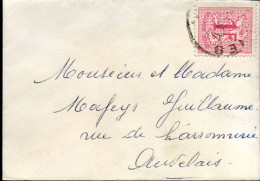 1F
Monsieur et Madame
Mafeys Guillaume
rue de
Auvelais.